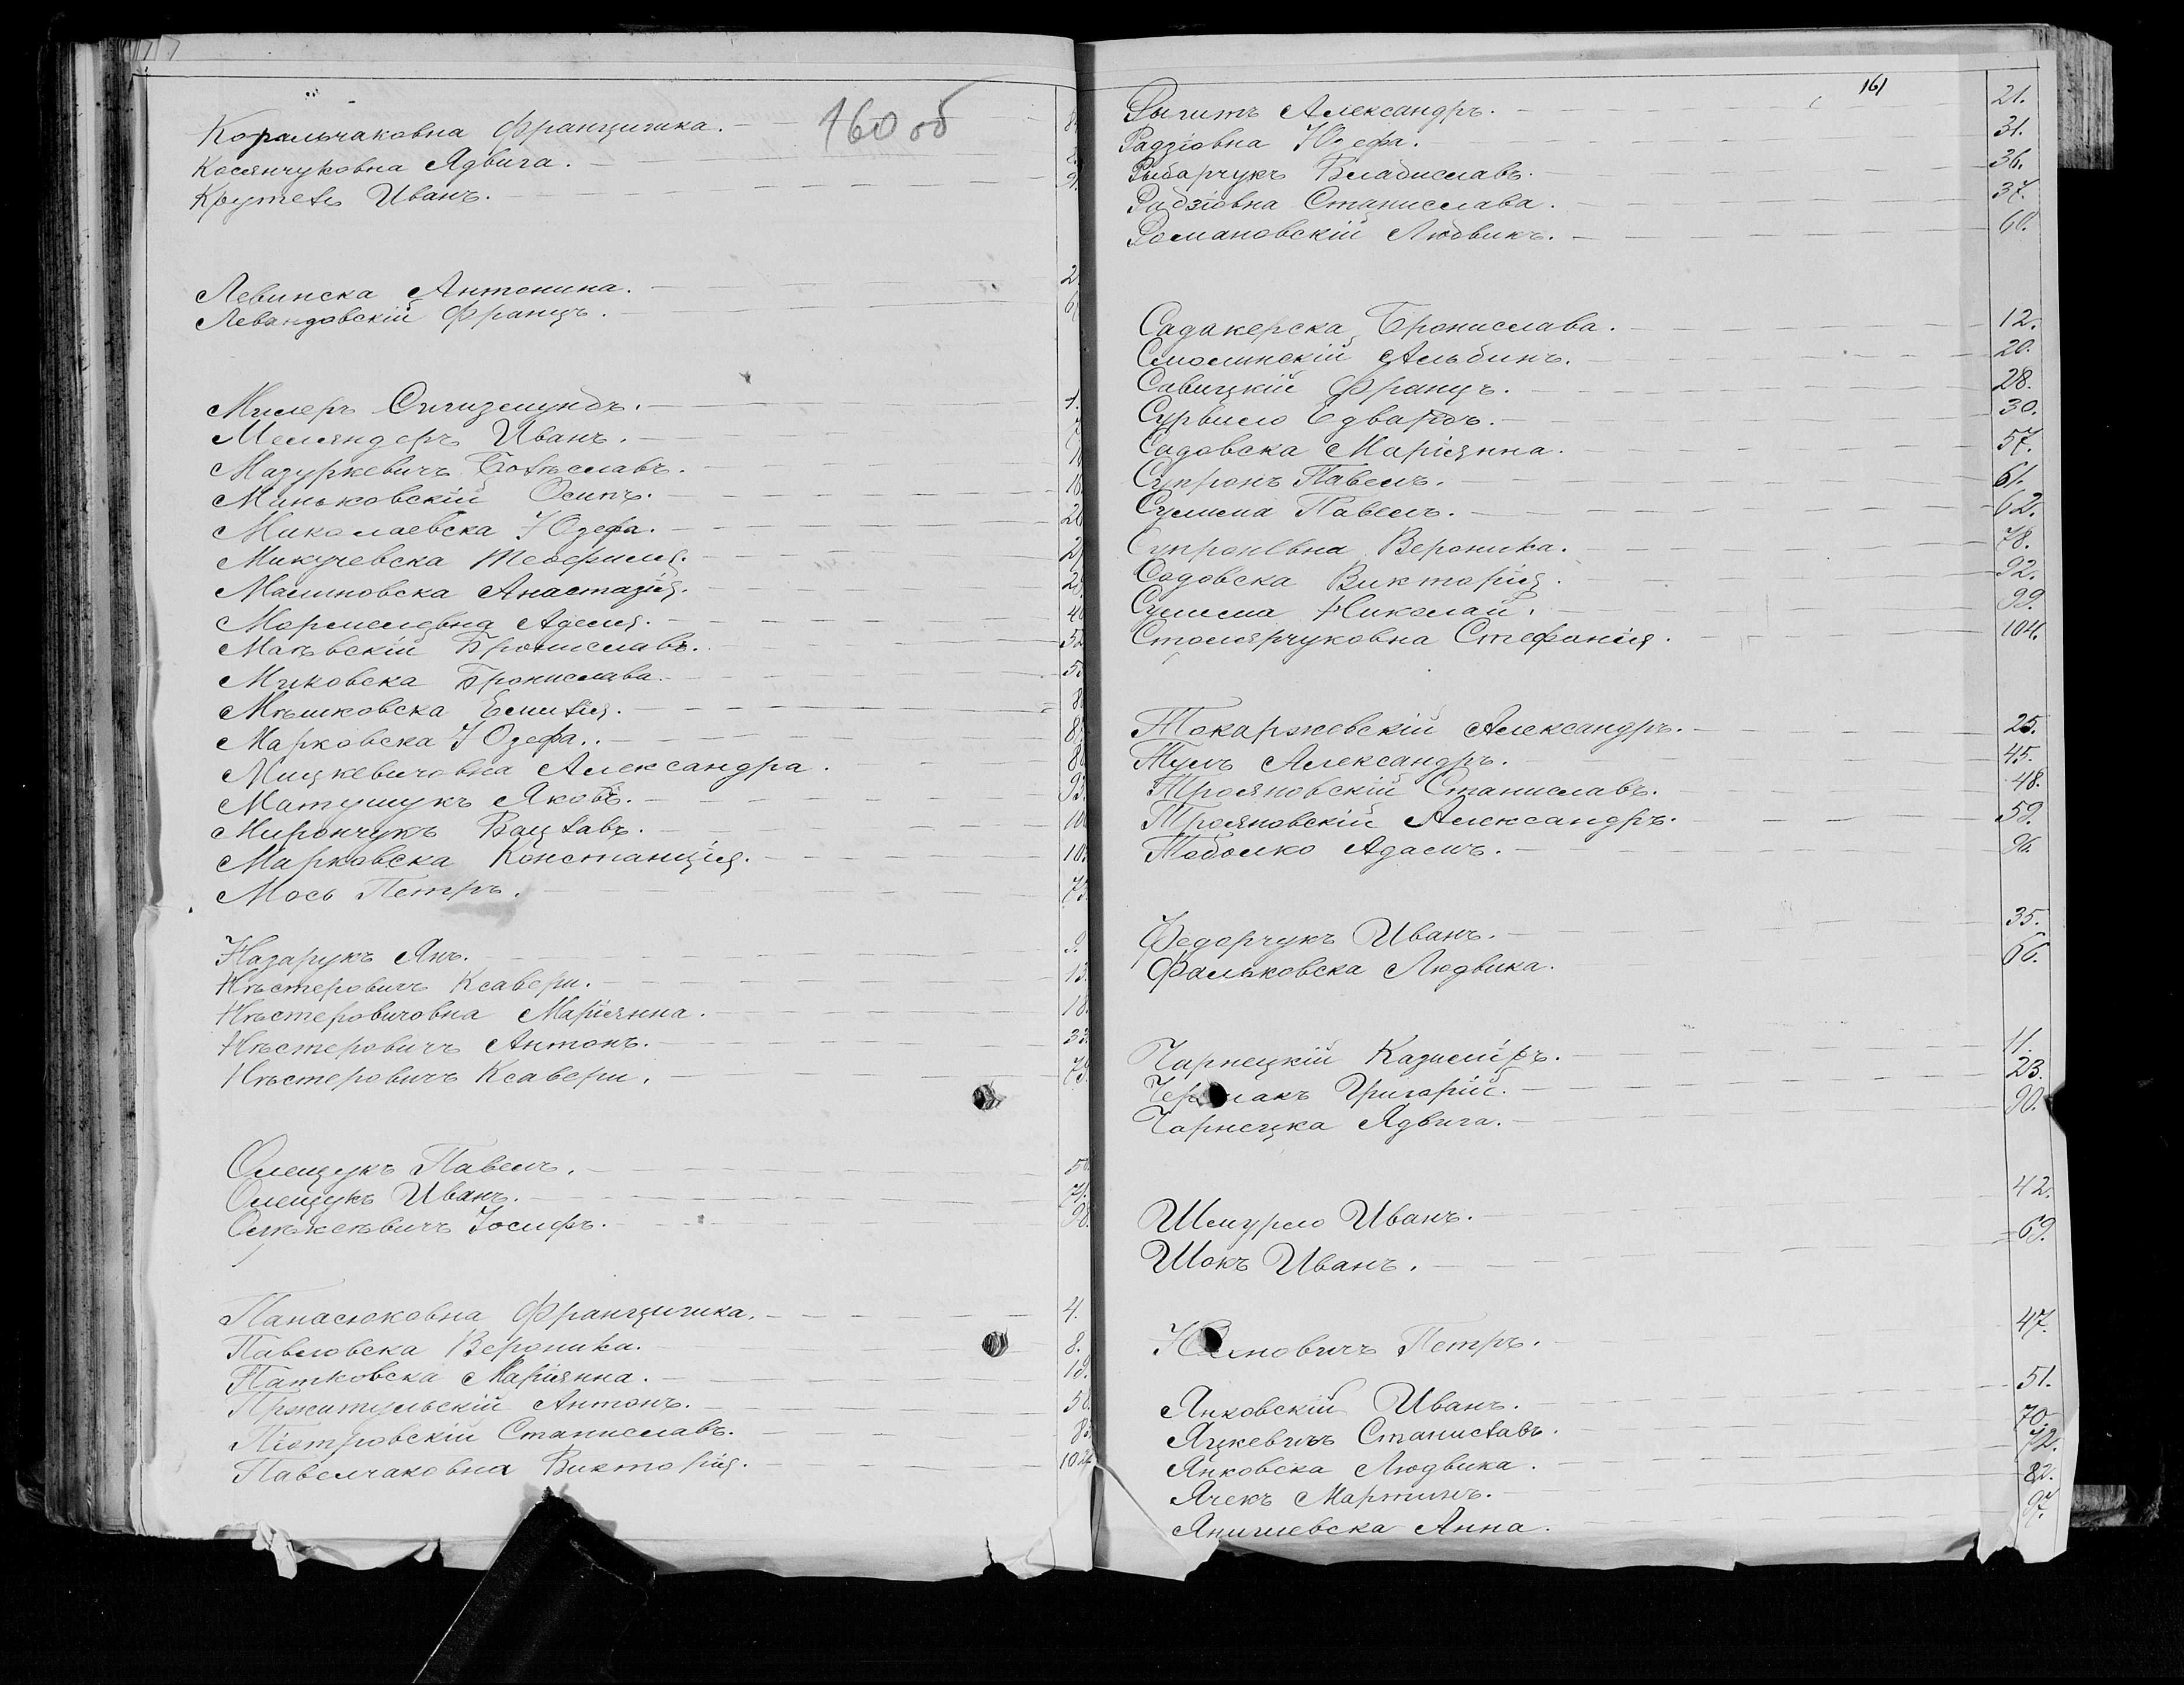 160 об
Коральчаковна Францишка. 8
Косянчуковна Ядвига.
Крутель Иванъ.
Левинска Антонина. 2
Левандовскій Францъ. 6
Милеръ Сигизмундъ. 1.
Меляндеръ Иванъ.
Мазуркевичъ Болѣславъ.
Миньковскій Осипъ. 18
Миколаевска Юзефа. 2
Микучевска Теофилія. 2
Малиновска Анастазія. 2
Мормелевна Аделя. 40
Маѣвскій Брониславъ. 52
Миковска Бронислава. 5
Мѣшковска Емилія. 8
Марковска Юзефа. 8
Мицкевичовна Александра. 8
Матушукъ Яковъ. 93.
Мирончукъ Вацлавъ. 10
Марковска Констанція. 10
Мось Петръ. 73.
Назарукъ Янъ. 9.
Нѣстеровичъ Ксавери. 13.
Нѣстеровичовна Маріянна. 18.
Нѣстеровичъ Антонъ. 33.
Нѣстеровичъ Ксавери. 73.
Олещукъ Павелъ. 5
Олещукъ Иванъ. 71.
Олѣхсѣвичъ Іосифъ. 98.
Панасюковна Францишка. 4.
Павловска Вероника. 8.
Патковска Маріянна. 19.
Пржитульскій Антонъ. 5
Піотровскій Станиславъ. 8
Павелчаковна Викторія. 102
161
Рычитъ Александръ. 21.
Радзіовна Юзефа. 31.
Рыбарчукъ Владиславъ. 36.
Радзіовна Станислава. 37.
Романовскій Людвикъ. 60.
Садакерска Бронислава. 12.
Смолинскій Альбинъ. 20.
Савицкій Францъ. 28.
Сурвило Едвардъ. 30.
Садовска Маріянна. 57.
Супронъ Павелъ. 61.
Сулима Павелъ. 62.
Супроневна Вероника. 78.
Садовска Викторія. 92.
Сулима Николай. 99.
Столярчуковна Стефанія. 104.
Токаржевскій Александръ. 25.
Тулъ Александръ. 45.
Трояновскій Станиславъ. 48.
Трояновскій Александръ. 59.
Тоболко Адамъ. 96.
Федорчукъ Иванъ. 35.
Фальковска Людвика. 66.
Чарнецкій Казиміръ. 11.
Григорій. 23.
Чарнецка Ядвига. 90.
Шмурло Иванъ. 42.
Шокъ Иванъ. 69.
Петръ. 47.
Янковскій Иванъ. 51.
Яцкевичъ Станиславъ. 70.
Янковска Людвика. 72.
Ячекъ Мартинъ. 82.
Янишевска Анна. 97.